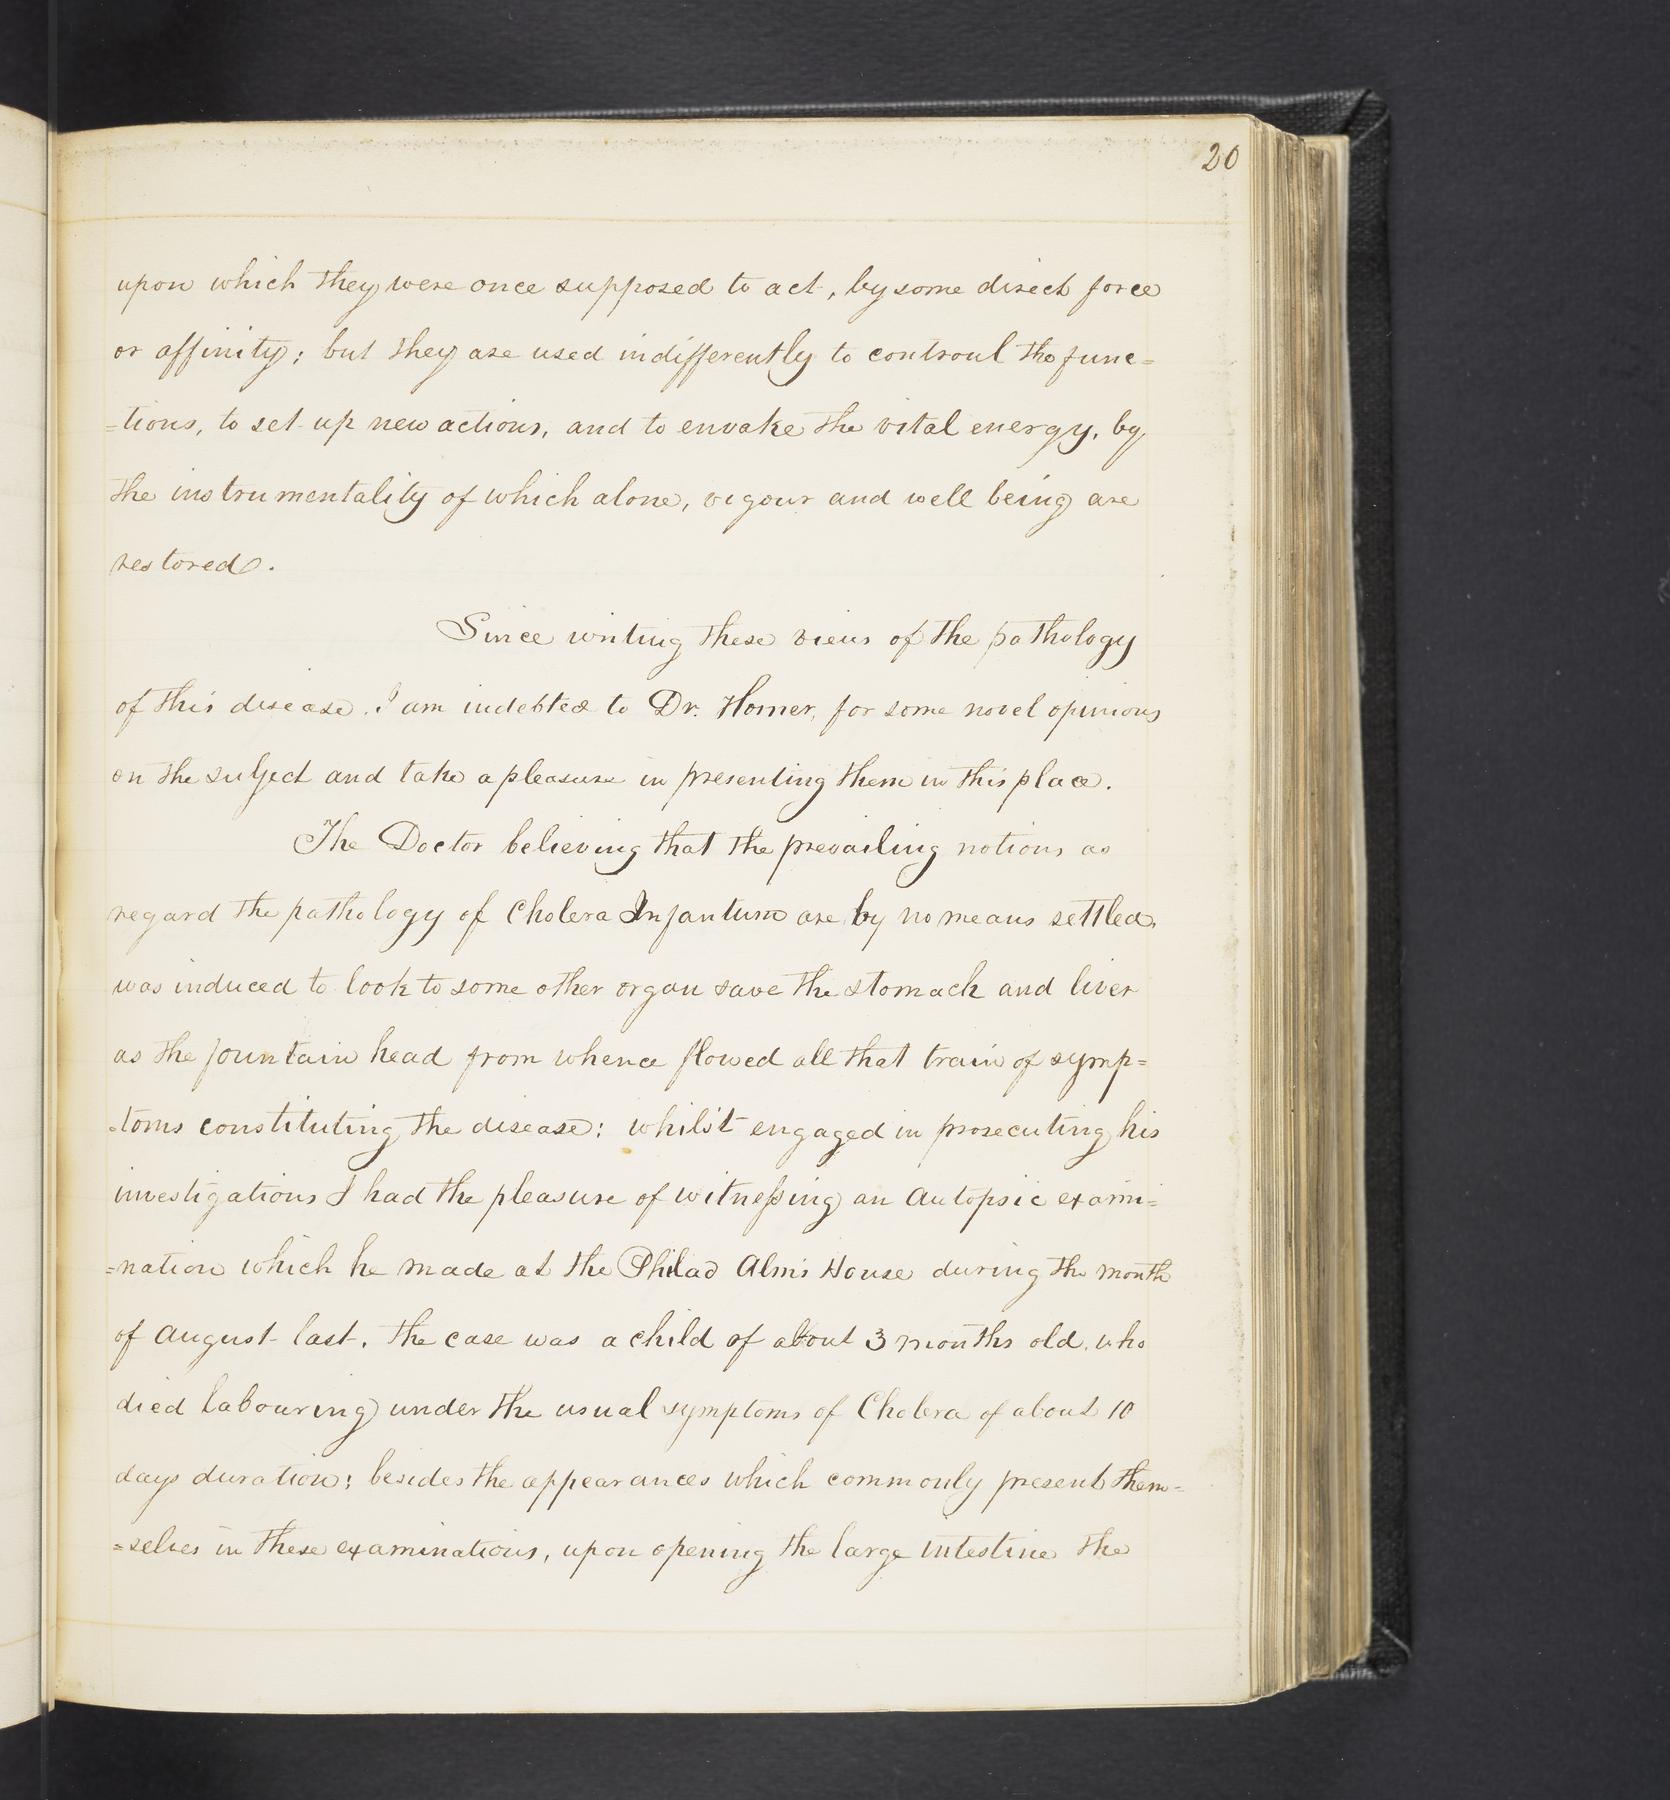 20
upon which they were once supposed to act, by some direct force
or affinity; but they are used indifferently to controul the func=
=tions, to set up new actions, and to envoke the vital energy, by
the instrumentality of which alone, vigour and well being are
restored.
Since writing these views of the pathology
of this disease. I am indebted to Dr. Horner, for some novel opinions
on the subject and take a pleasure in presenting them in this place.
The Doctor believing that the prevailing notions as
regard the pathology of Cholera Infantum are by no means settled,
was induced to look to some other organ save the stomach and liver
as the fountain head from whence flowed all that train of symp=
=toms constituting the disease: whilst engaged in prosecuting his
investigations I had the pleasure of witnessing an Autopsic exami=
=nation which he made at the Philad Alms House during the month
of August last. The case was a child of about 3 months old, who
died labouring under the usual symptoms of Cholera of about 10
days duration; besides the appearances which commonly present them=
=selves in these examinations, upon opening the large intestine the